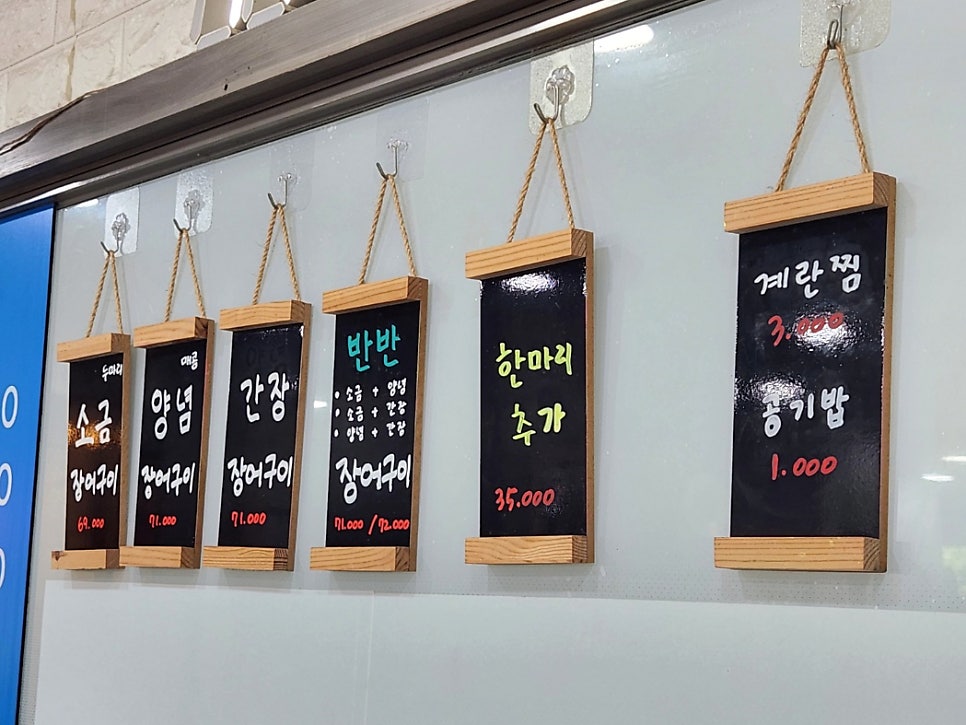 두마리
소금
장어구이
69.000
매콤
양념
장어구이
71.000
간장
장어구이
71.000
반반
• 소금 + 양념
• 소금 + 간장
• 양념 + 간장
장어구이
71.000 / 72.000
한마리
추가
35.000
계란찜
3.000
공기밥
1.000